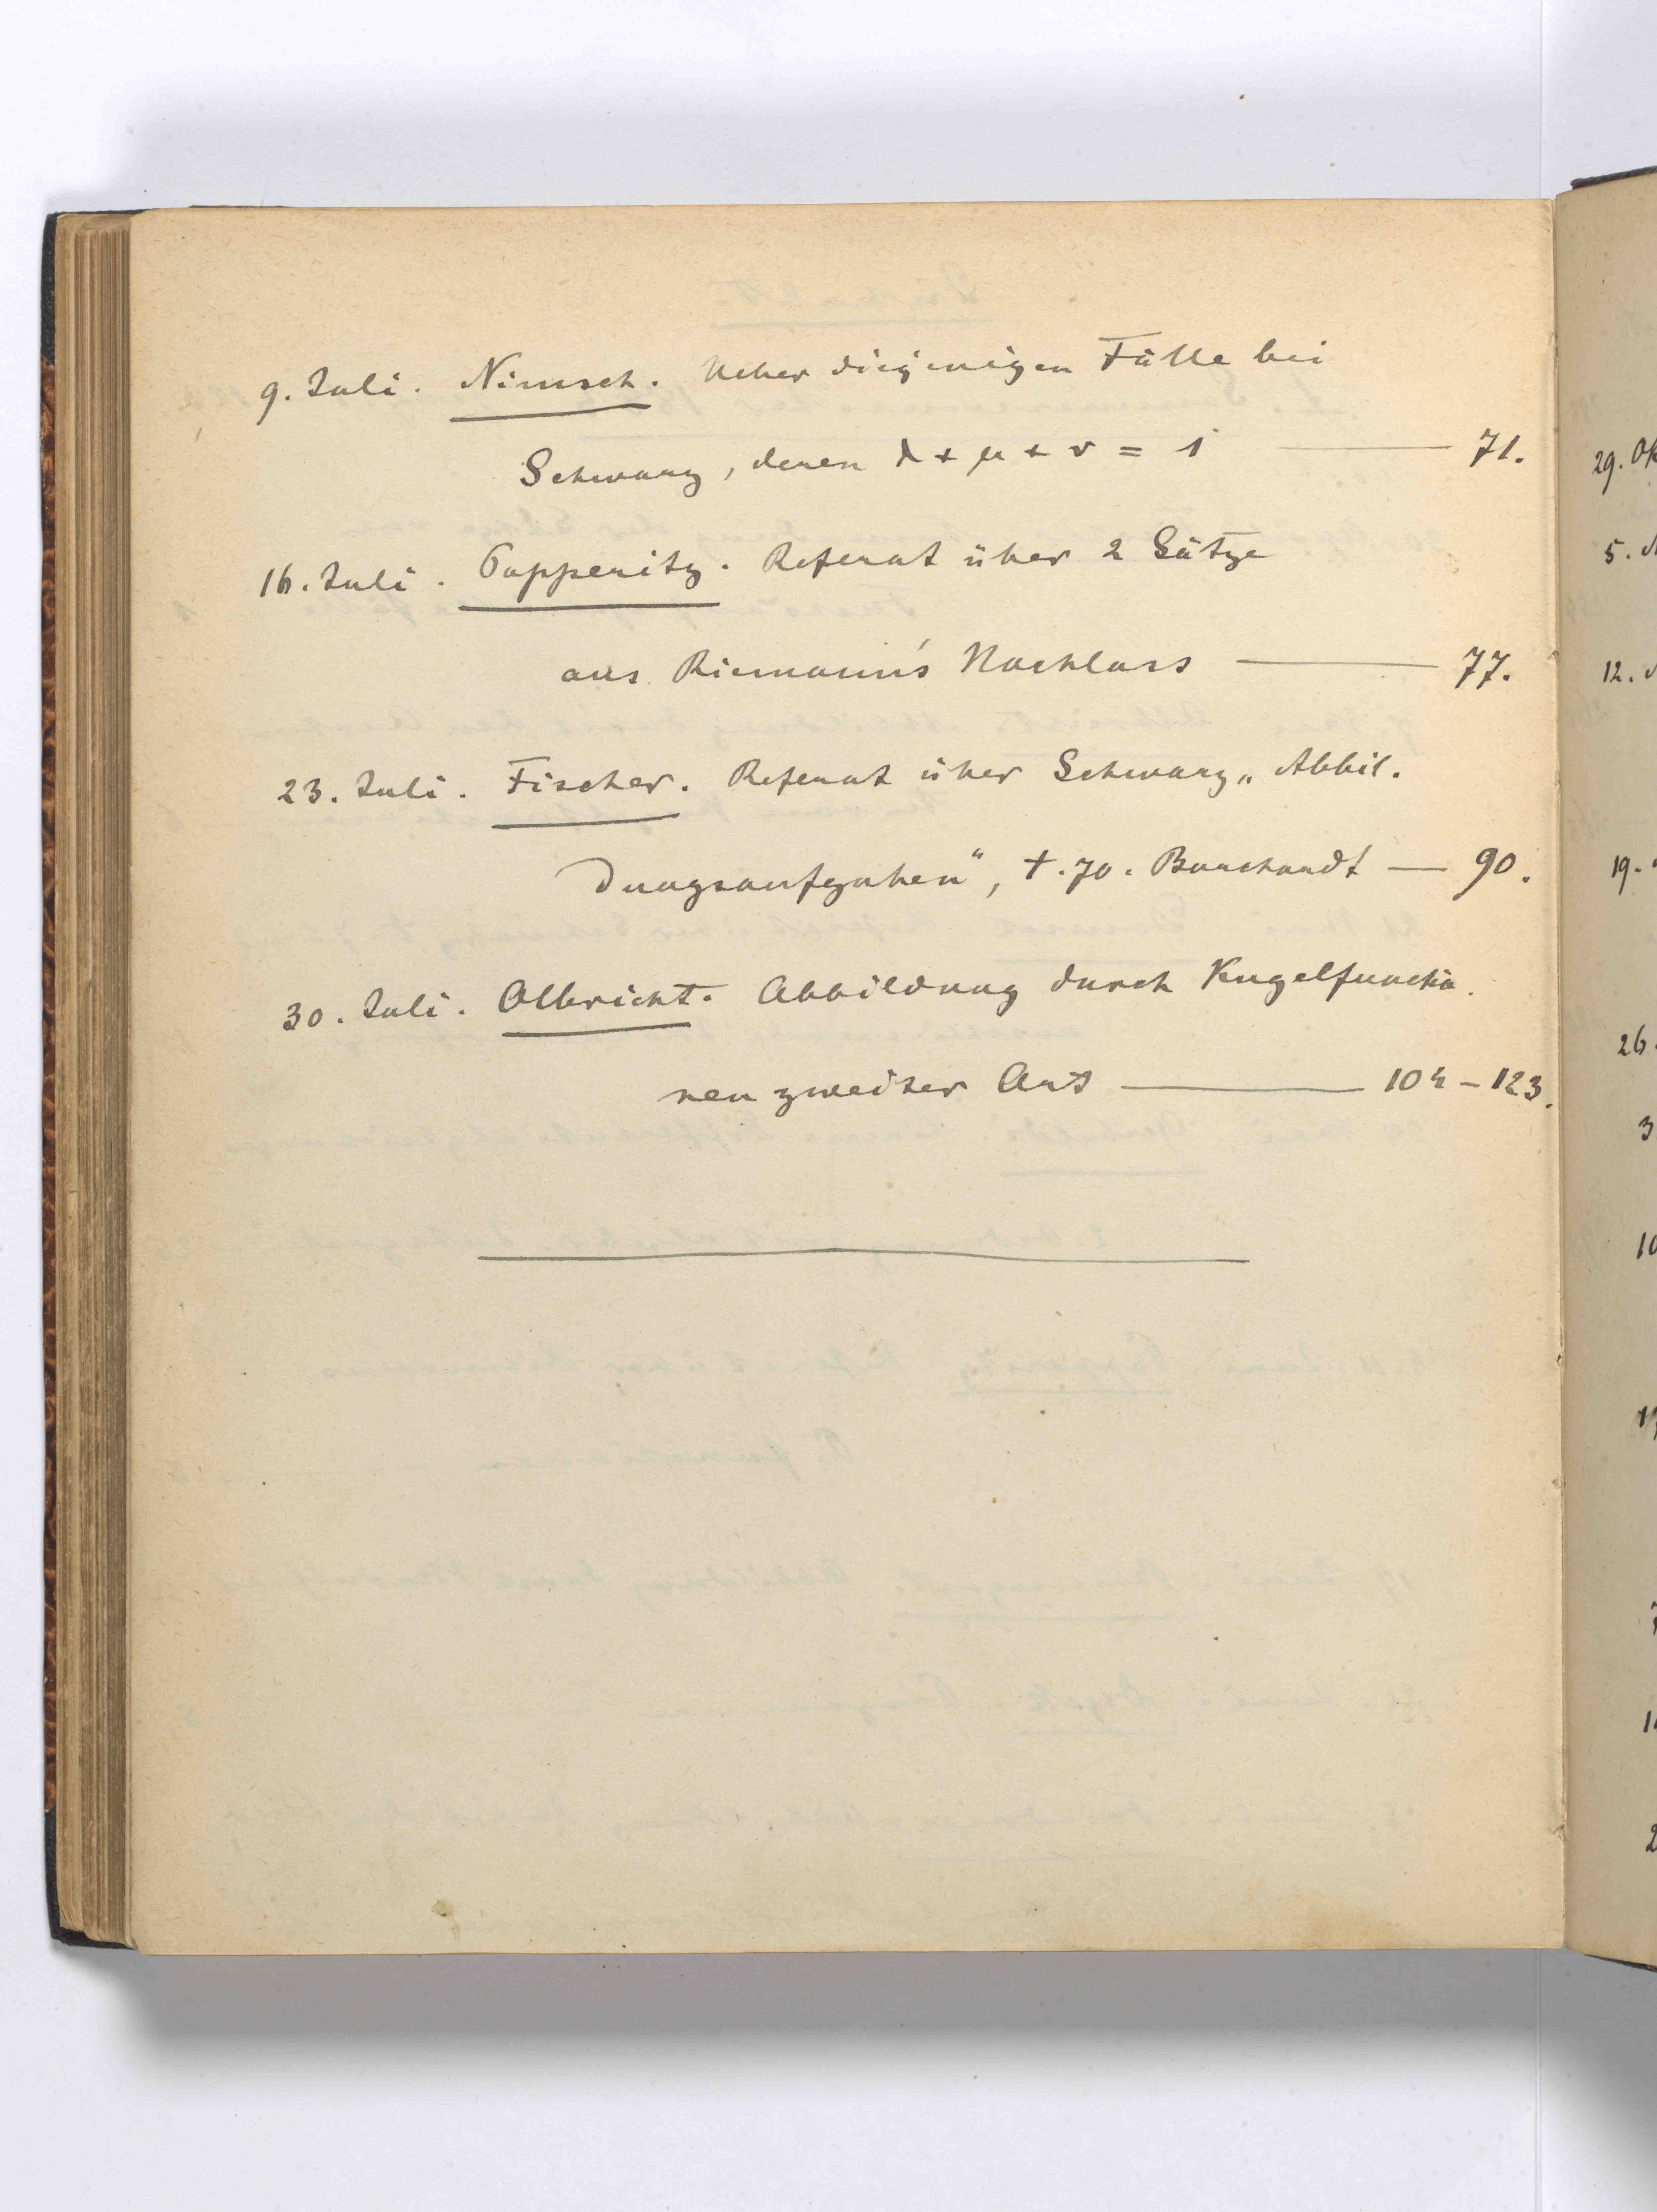 9. Juli. Nimsch. Ueber diejenigen Fälle bei
Schwarz, denen λ + μ + ν = 1 — 71.
16. Juli. Papperitz. Referat über 2 Sätze
aus Riemann's Nachlass — 77.
23. Juli. Fischer. Referat über Schwarz „Abbil-
dungsaufgaben“, t. 70. Borchardt — 90.
30. Juli. Olbricht. Abbildung durch Kugelfunctio-
nen zweiter Art — 104 – 123.
29. Ok
5.
12.
19.
26.
3
10